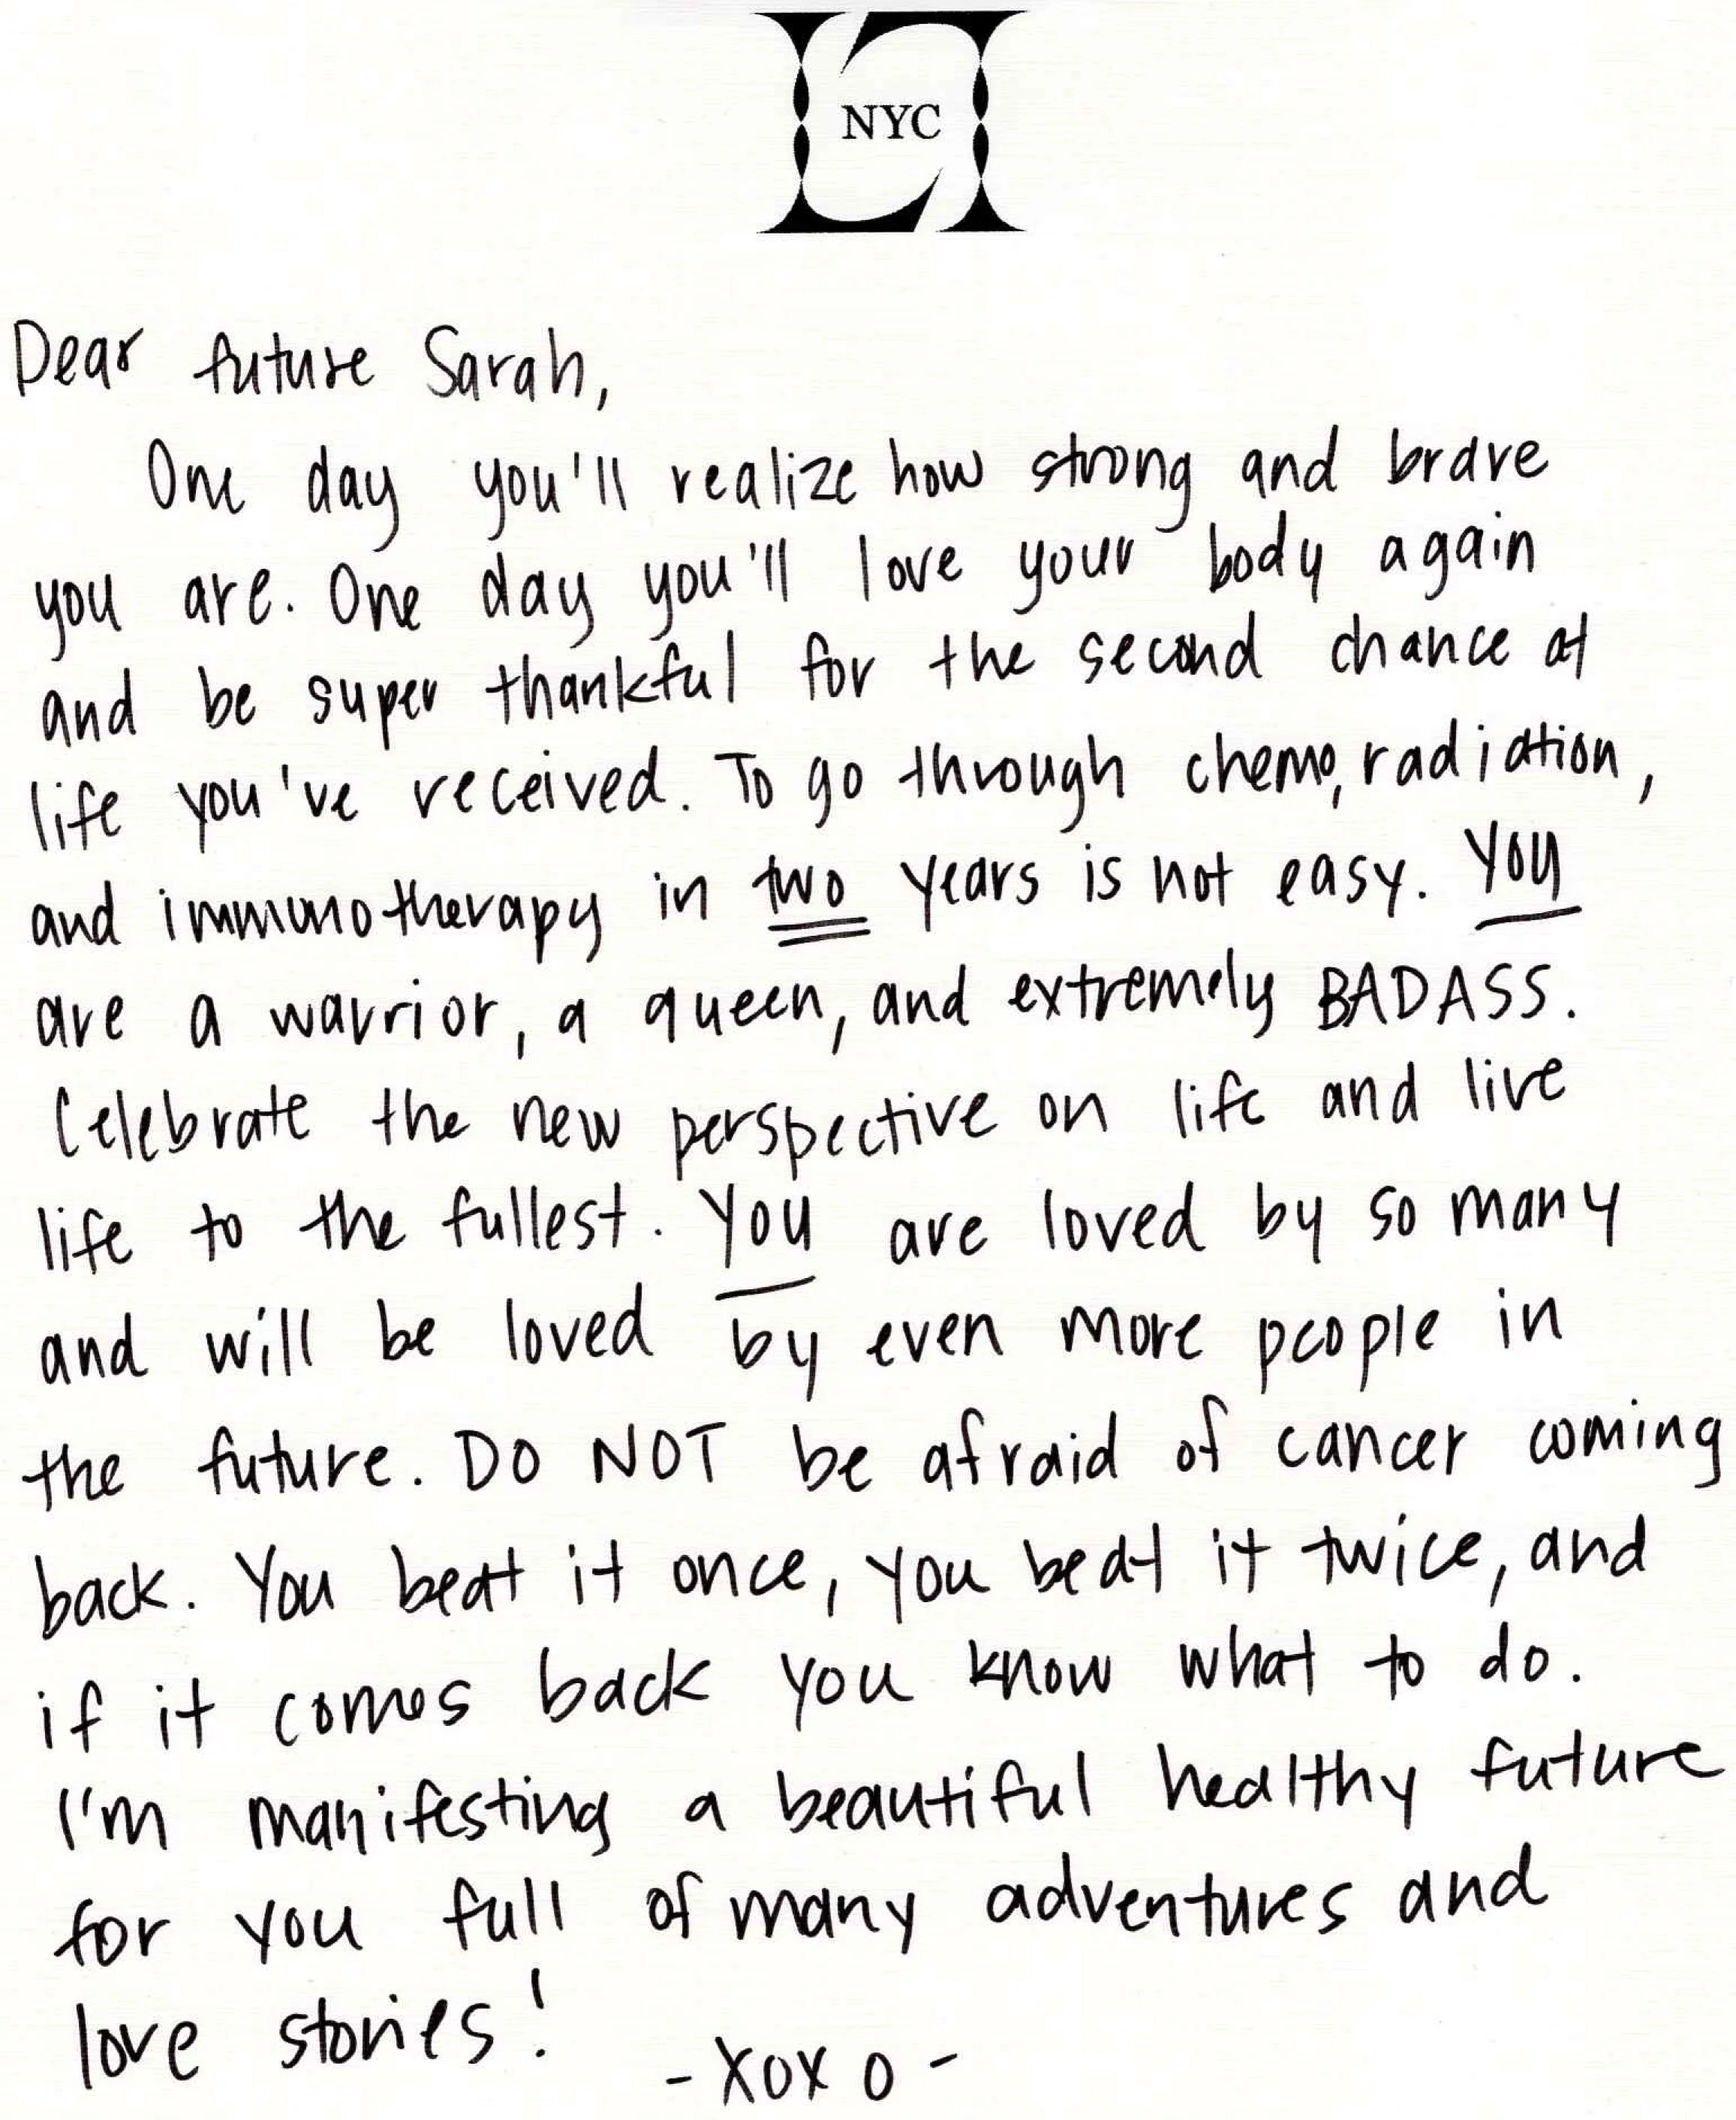 NYC
Dear future Sarah,
One day you'll realize how strong and brave
you are. One day you'll love your body again
and be super thankful for the second chance at
life you've received. To go through chemo, radiation,
and immunotherapy in two years is not easy. You
are a warrior, a queen, and extremely BADASS.
Celebrate the new perspective on life and live
life to the fullest. You are loved by so many
and will be loved by even more people in
the future. DO NOT be afraid of cancer coming
back. You beat it once, you beat it twice, and
if it comes back you know what to do.
I'm manifesting a beautiful healthy future
for you full of many adventures and
love stories!
- XOXO -